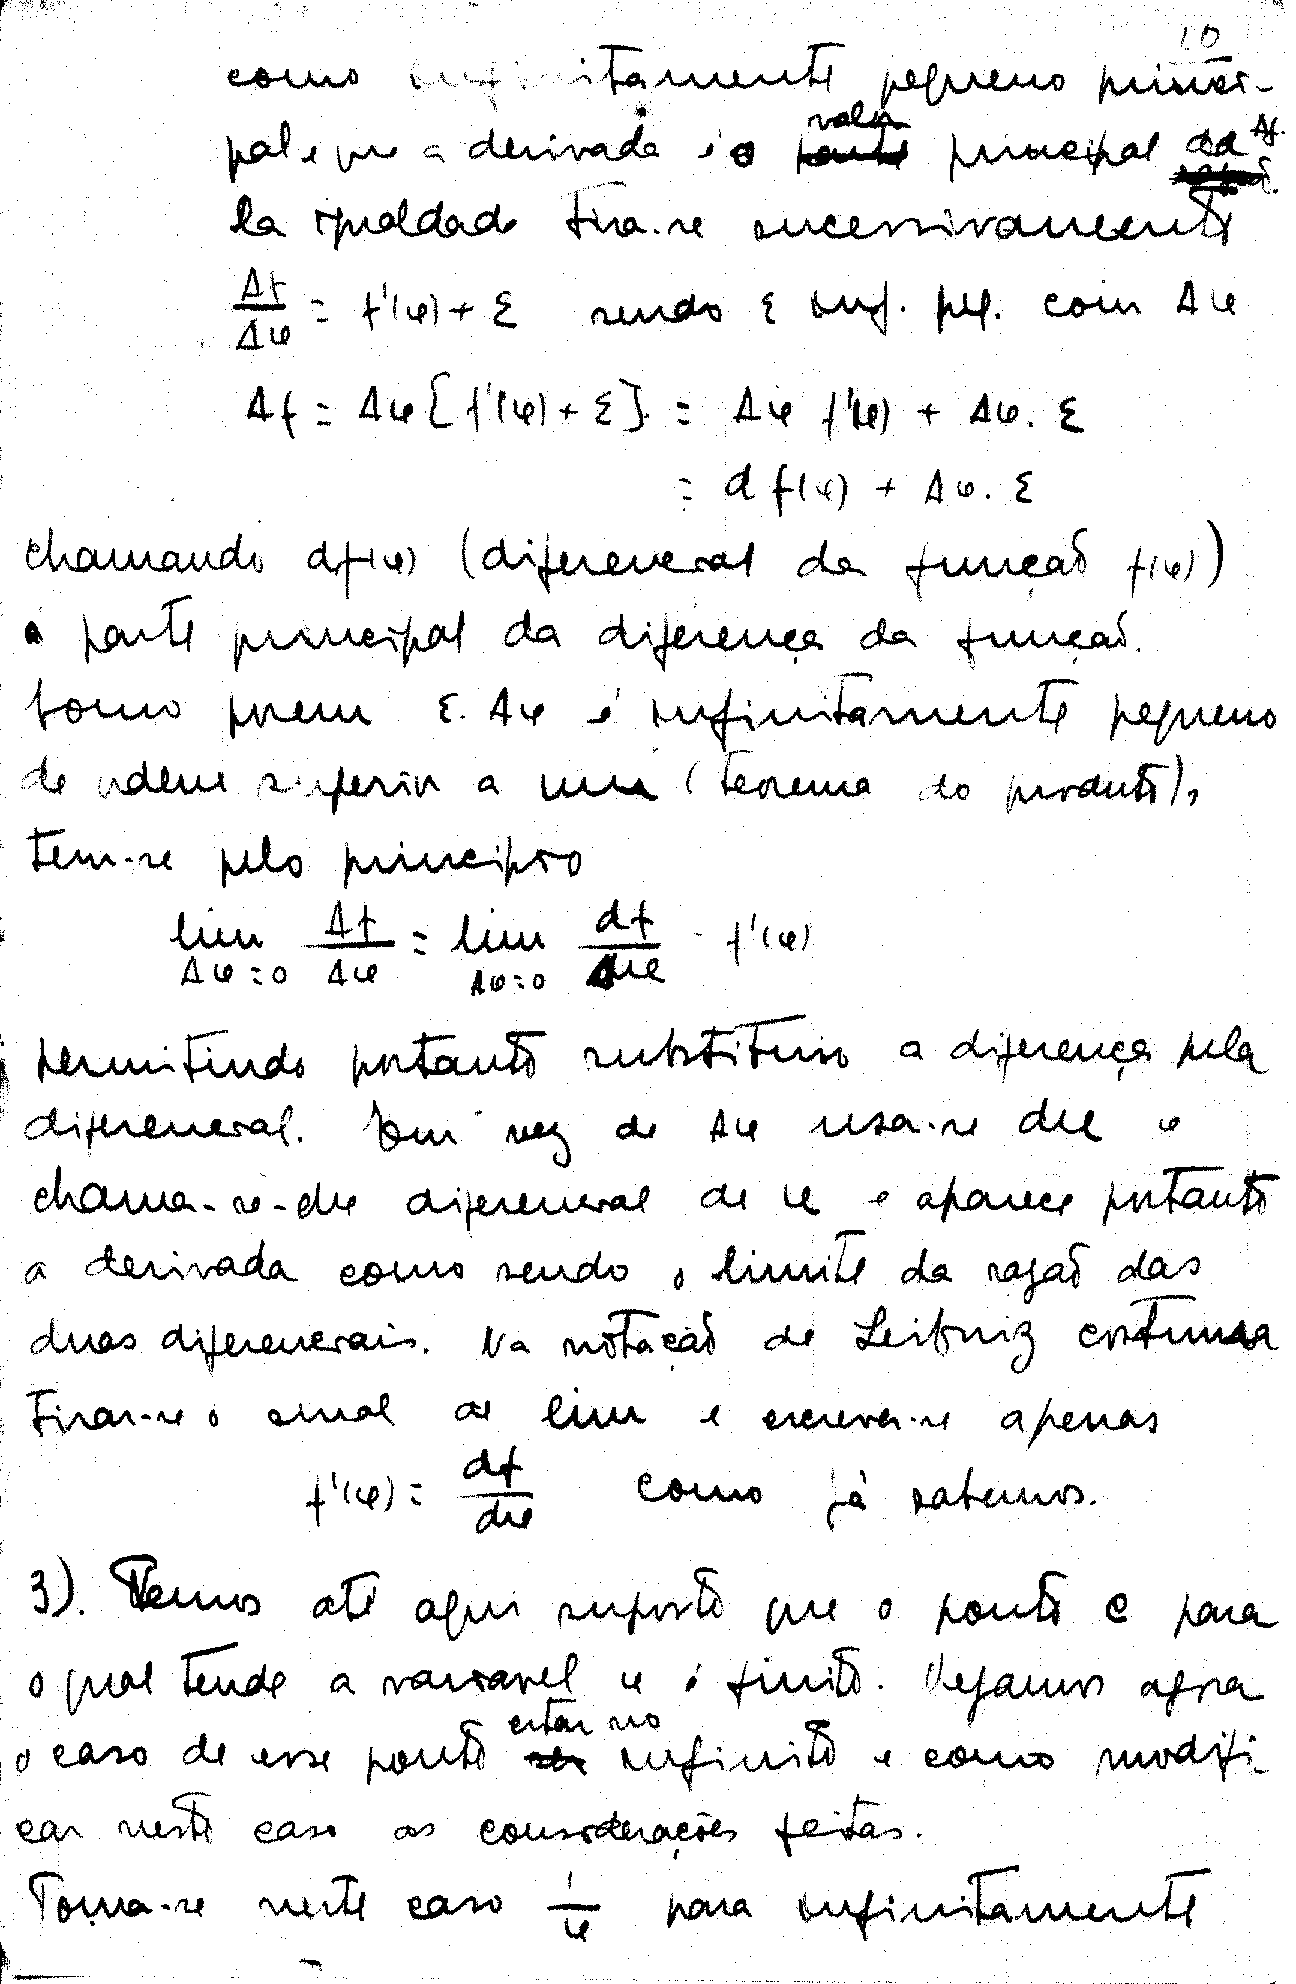 10
como infinitamente pequeno princi-
pal e que a derivada é o valor principal da Δf.
Da igualdade tira-se sucessivamente
Δf/Δx = f'(x) + ε sendo ε inf. peq. com Δx
Δf = Δx [f'(x) + ε] = Δx f'(x) + Δx. ε
= d f(x) + Δx. ε
chamando df(x) (diferencial da função f(x))
a parte principal da diferença da função.
Como porem ε. Δx é infinitamente pequeno
de ordem superior a um (teorema do produto),
tem-se pelo principio
lim Δx=0 Δf/Δx = lim Δx=0 df/dx = f'(x)
permitindo portanto substituir a diferença pela
diferencial. Em vez de Δx usa-se dx e
chama-se-lhe diferencial de x e aparece portanto
a derivada como sendo o limite da razaõ das
duas diferenciais. Na notação de Leibniz costuma
tirar-se o sinal de lim e escrever-se apenas
f'(x) = df/dx como já sabemos.
3). Temos até aqui suposto que o ponto c para
o qual tende a variavel x é finito. Vejamos agora
o caso de esse ponto estar no infinito e como modifi-
car neste caso as considerações feitas.
Toma-se neste caso 1/x para infinitamente